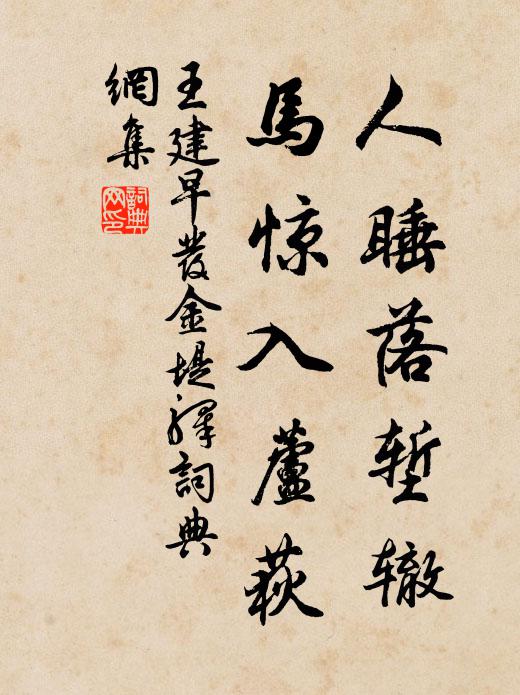 人睡落堑辙
馬惊入蘆荻
王建早發金堤驛詞典
網集
詞典
网印